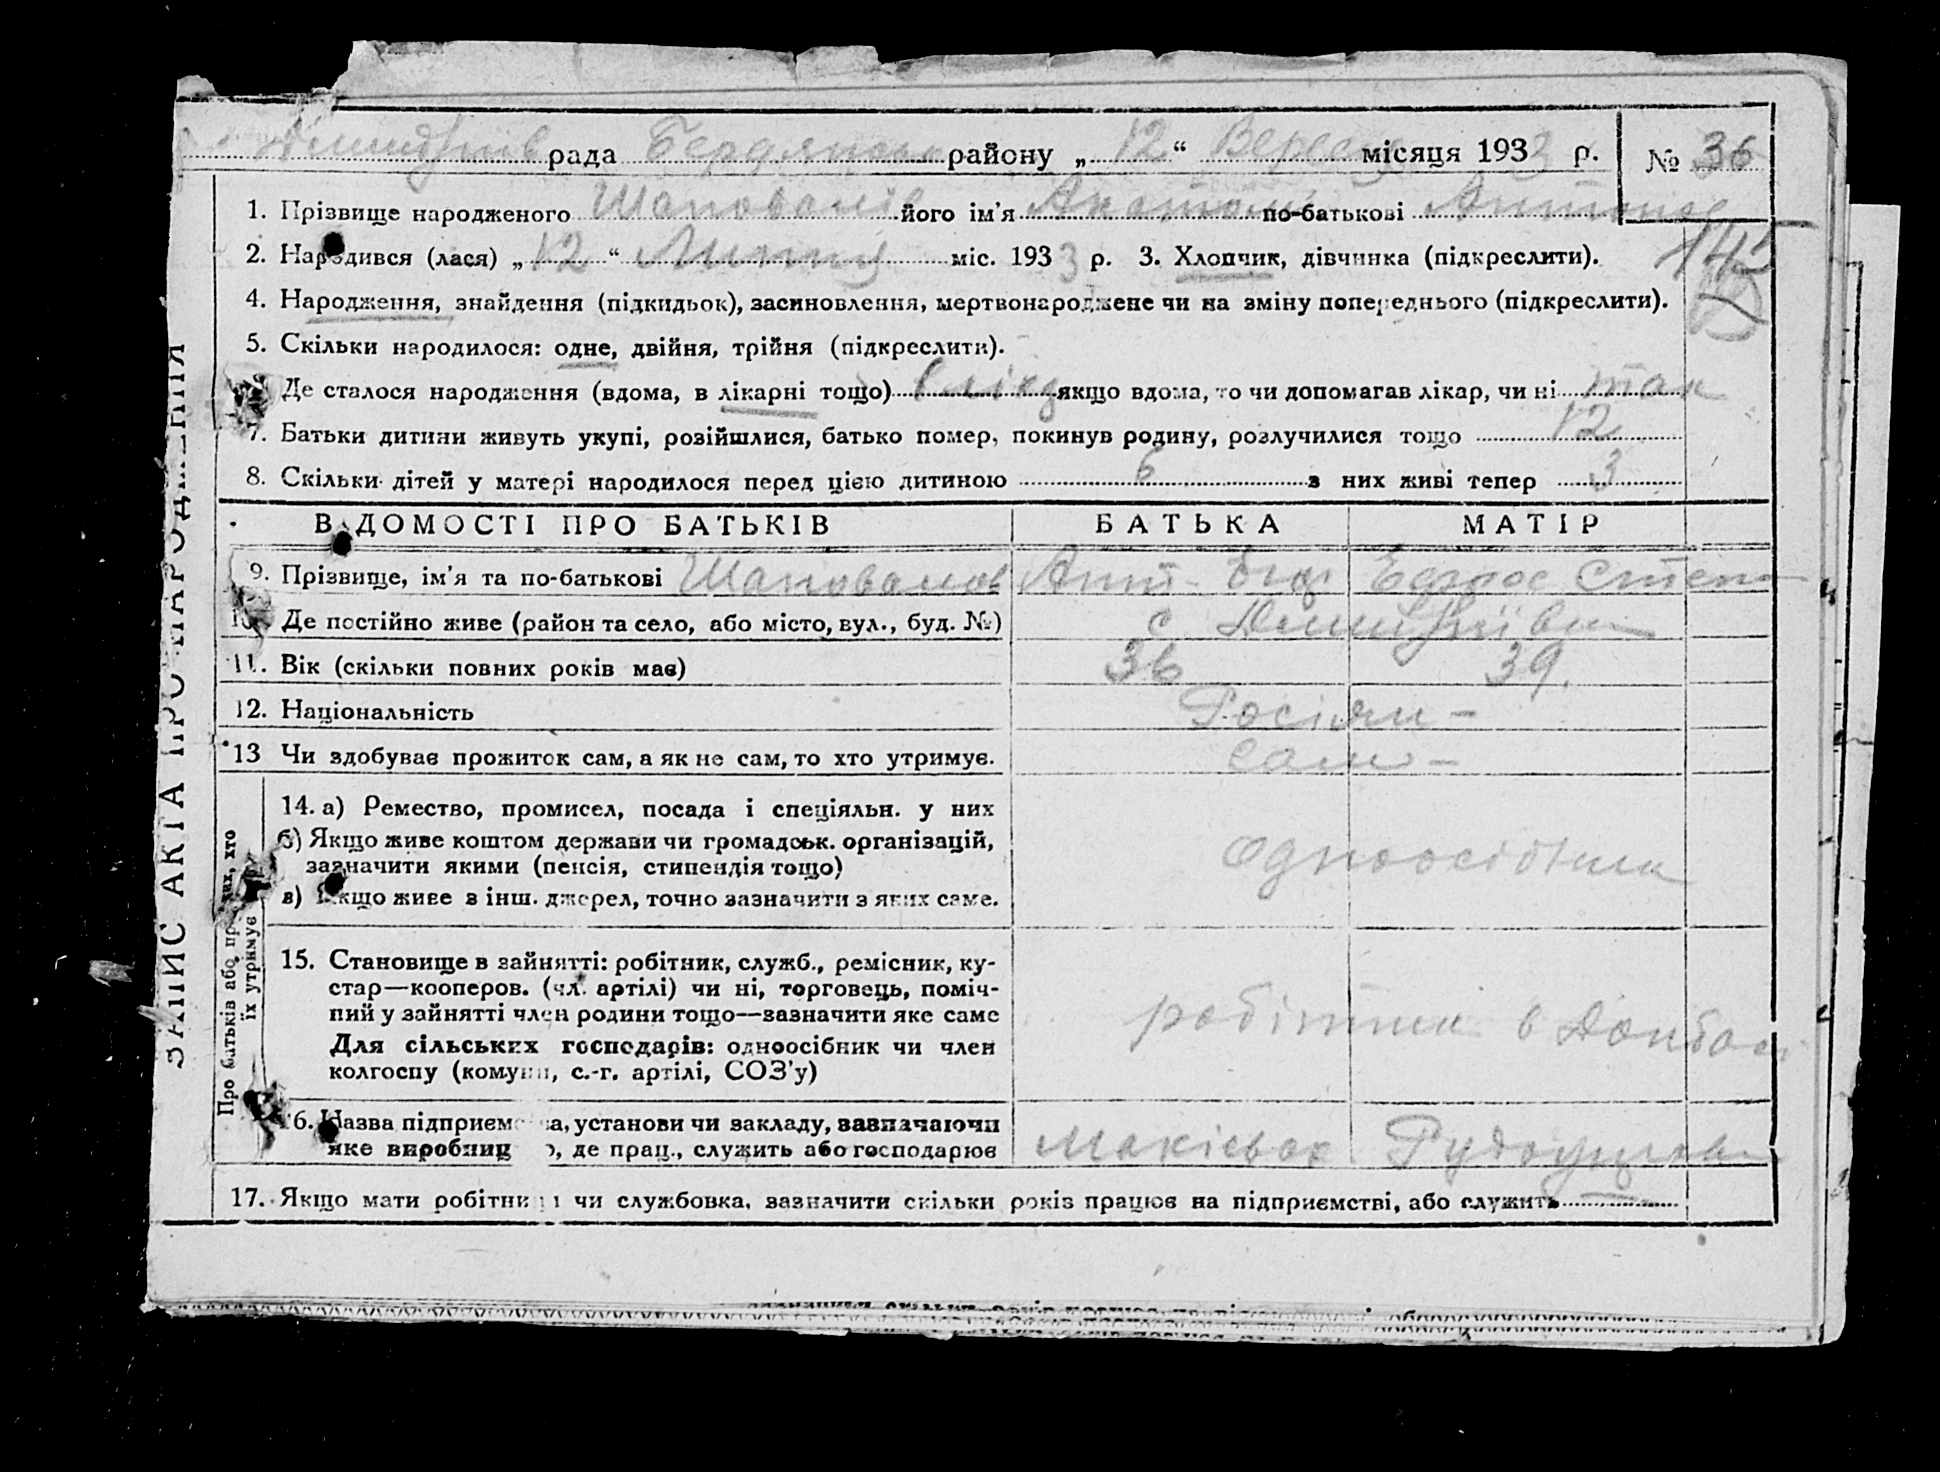 рада Бердянськ району „ 12 “ Вересн місяця 1933 р. № 36
1. Прізвище народженого Шаповалів його ім’я Анатолій по-батькові Антонов
145
2. Народився (лася) „ 12 “ Липня міс. 1933 р. 3. Хлопчик, дівчинка (підкреслити).
4. Народження, знайдення (підкидьок), засиновлення, мертвонароджене чи на зміну попереднього (підкреслити).
5. Скільки народилося: одне, двійня, трійня (підкреслити).
Де сталося народження (вдома, в лікарні тощо) якщо вдома, то чи допомагав лікар, чи ні так
7. Батьки дитини живуть укупі, розійшлися, батько помер, покинув родину, розлучилися тощо 12
8. Скільки дітей у матері народилося перед цією дитиною 6 з них живі тепер 3
ВІДОМОСТІ ПРО БАТЬКІВ БАТЬКА МАТІР
9. Прізвище, ім’я та по-батькові Шаповалов Ант. Степ
10. Де постійно живе (район та село, або місто, вул., буд. №) с Дмитрівка
11. Вік (скільки повних років має) 36 39.
12. Національність Росіян –
13 Чи здобуває прожиток сам, а як не сам, то хто утримує. сам –
14. а) Ремество, промисел, посада і спеціяльн. у них
б) Якщо живе коштом держави чи громадськ. організацій,
зазначити якими (пенсія, стипендія тощо)
одноосібник
в) Якщо живе з інш. джерел, точно зазначити з яких саме.
15. Становище в зайнятті: робітник, служб., ремісник, ку-
стар—кооперов. (чл. артілі) чи ні, торговець, поміч-
ний у зайнятті член родини тощо—зазначити яке саме
робітник в Донбасі
Для сільських господарів: одноосібник чи член
колгоспу (комуни, с.-г. артілі, СОЗ’у)
16. Назва підприємства, установи чи закладу, зазначаючи
яке виробництво, де прац., служить або господарює
17. Якщо мати робітниця чи службовка, зазначити скільки років працює на підприємстві, або служить
ЗАПИС АКТА ПРО НАРОДЖЕННЯ
Про батьків або про тих, хто
їх утримує